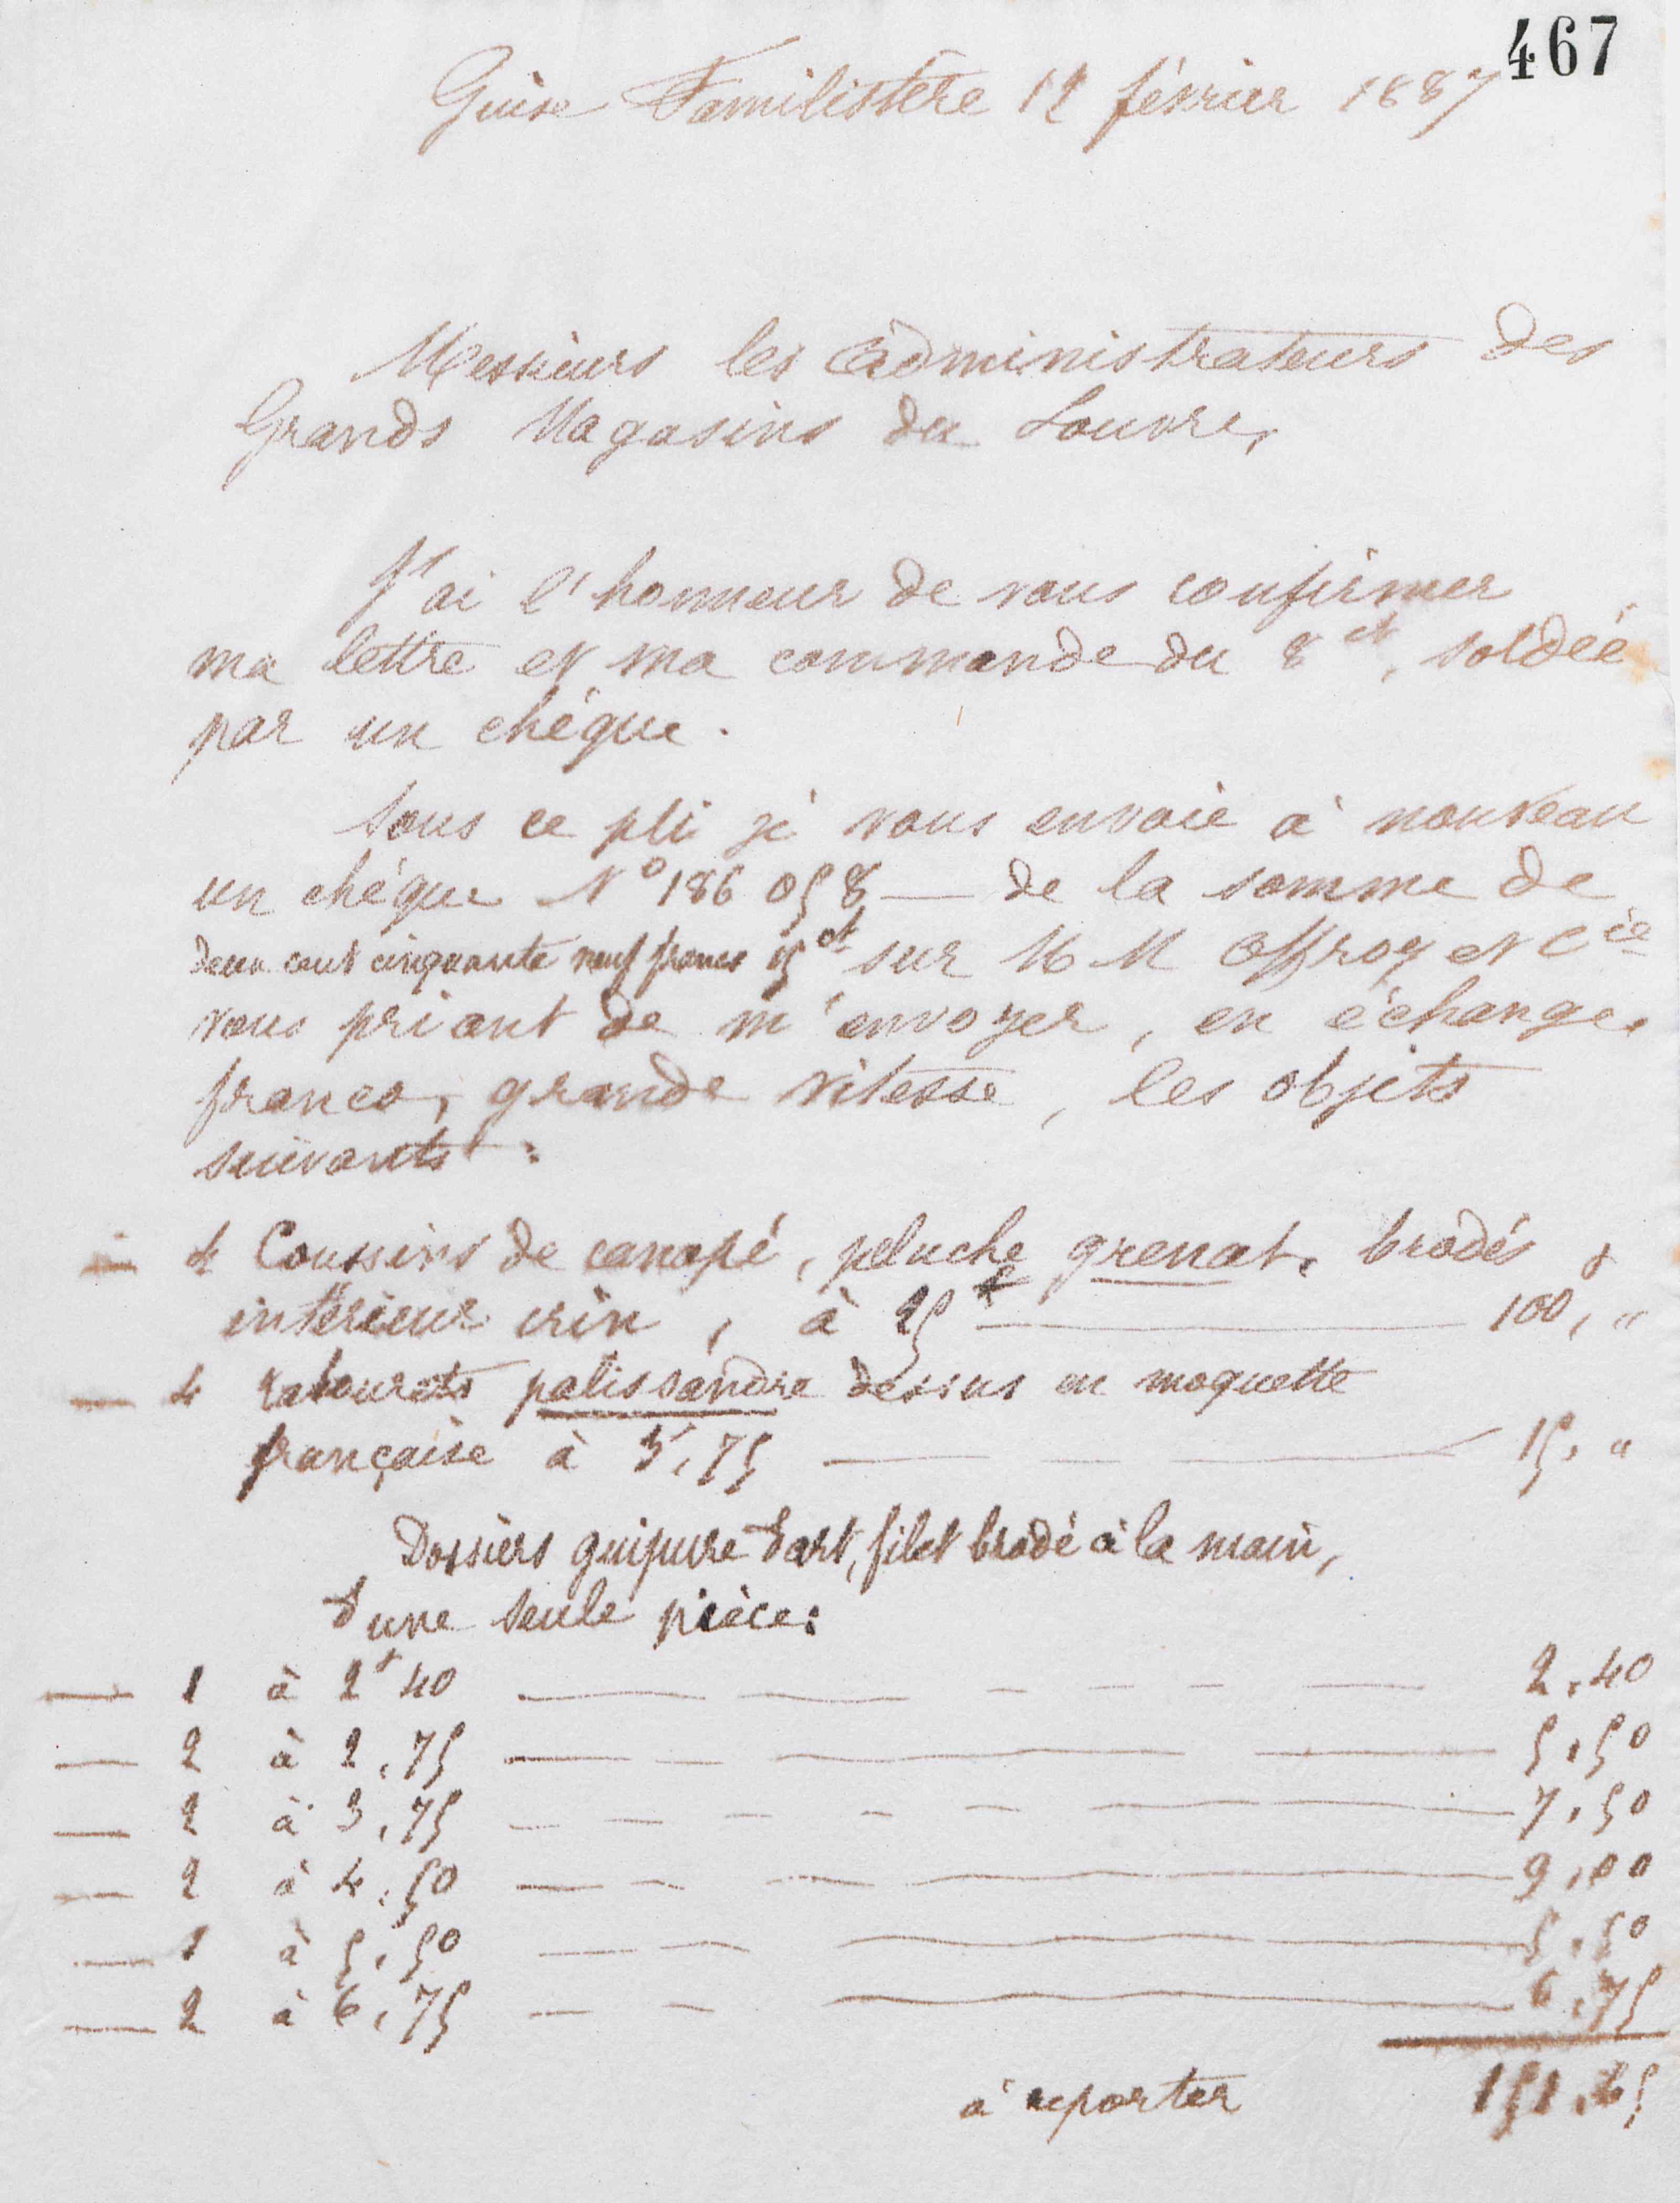 467
Guise Familistère 12 février 1887
Messieurs les administrateurs des
Grands Magasins du Louvre,
J'ai l'honneur de vous confirmer
ma lettre et ma commande du 8 ct, soldée
par un chèque.
Sous ce pli je vous envoie à nouveau
un chèque N° 186 058 — de la somme de
deux cent cinquante neuf francs 15 ct sur MM Offroy et Cie
vous priant de m'envoyer, en échange,
franco, grande vitesse, les objets
suivants :
— 4 Coussins de canapé, peluche grenat, brodés &
intérieur crin, à 25 f — 100, "
— 4 tabourets palissandre dessus en moquette
française à 3,75 — 15, "
Dossiers guipure d'art, filet brodé à la main,
d'une seule pièce :
— 1 à 2f 40 — 2,40
— 2 à 2,75 — 5,50
— 2 à 3,75 — 7,50
— 2 à 4,50 — 9,00
— 1 à 5,50 — 5,50
— 2 à 6,75 — 6,75
à reporter 151,65